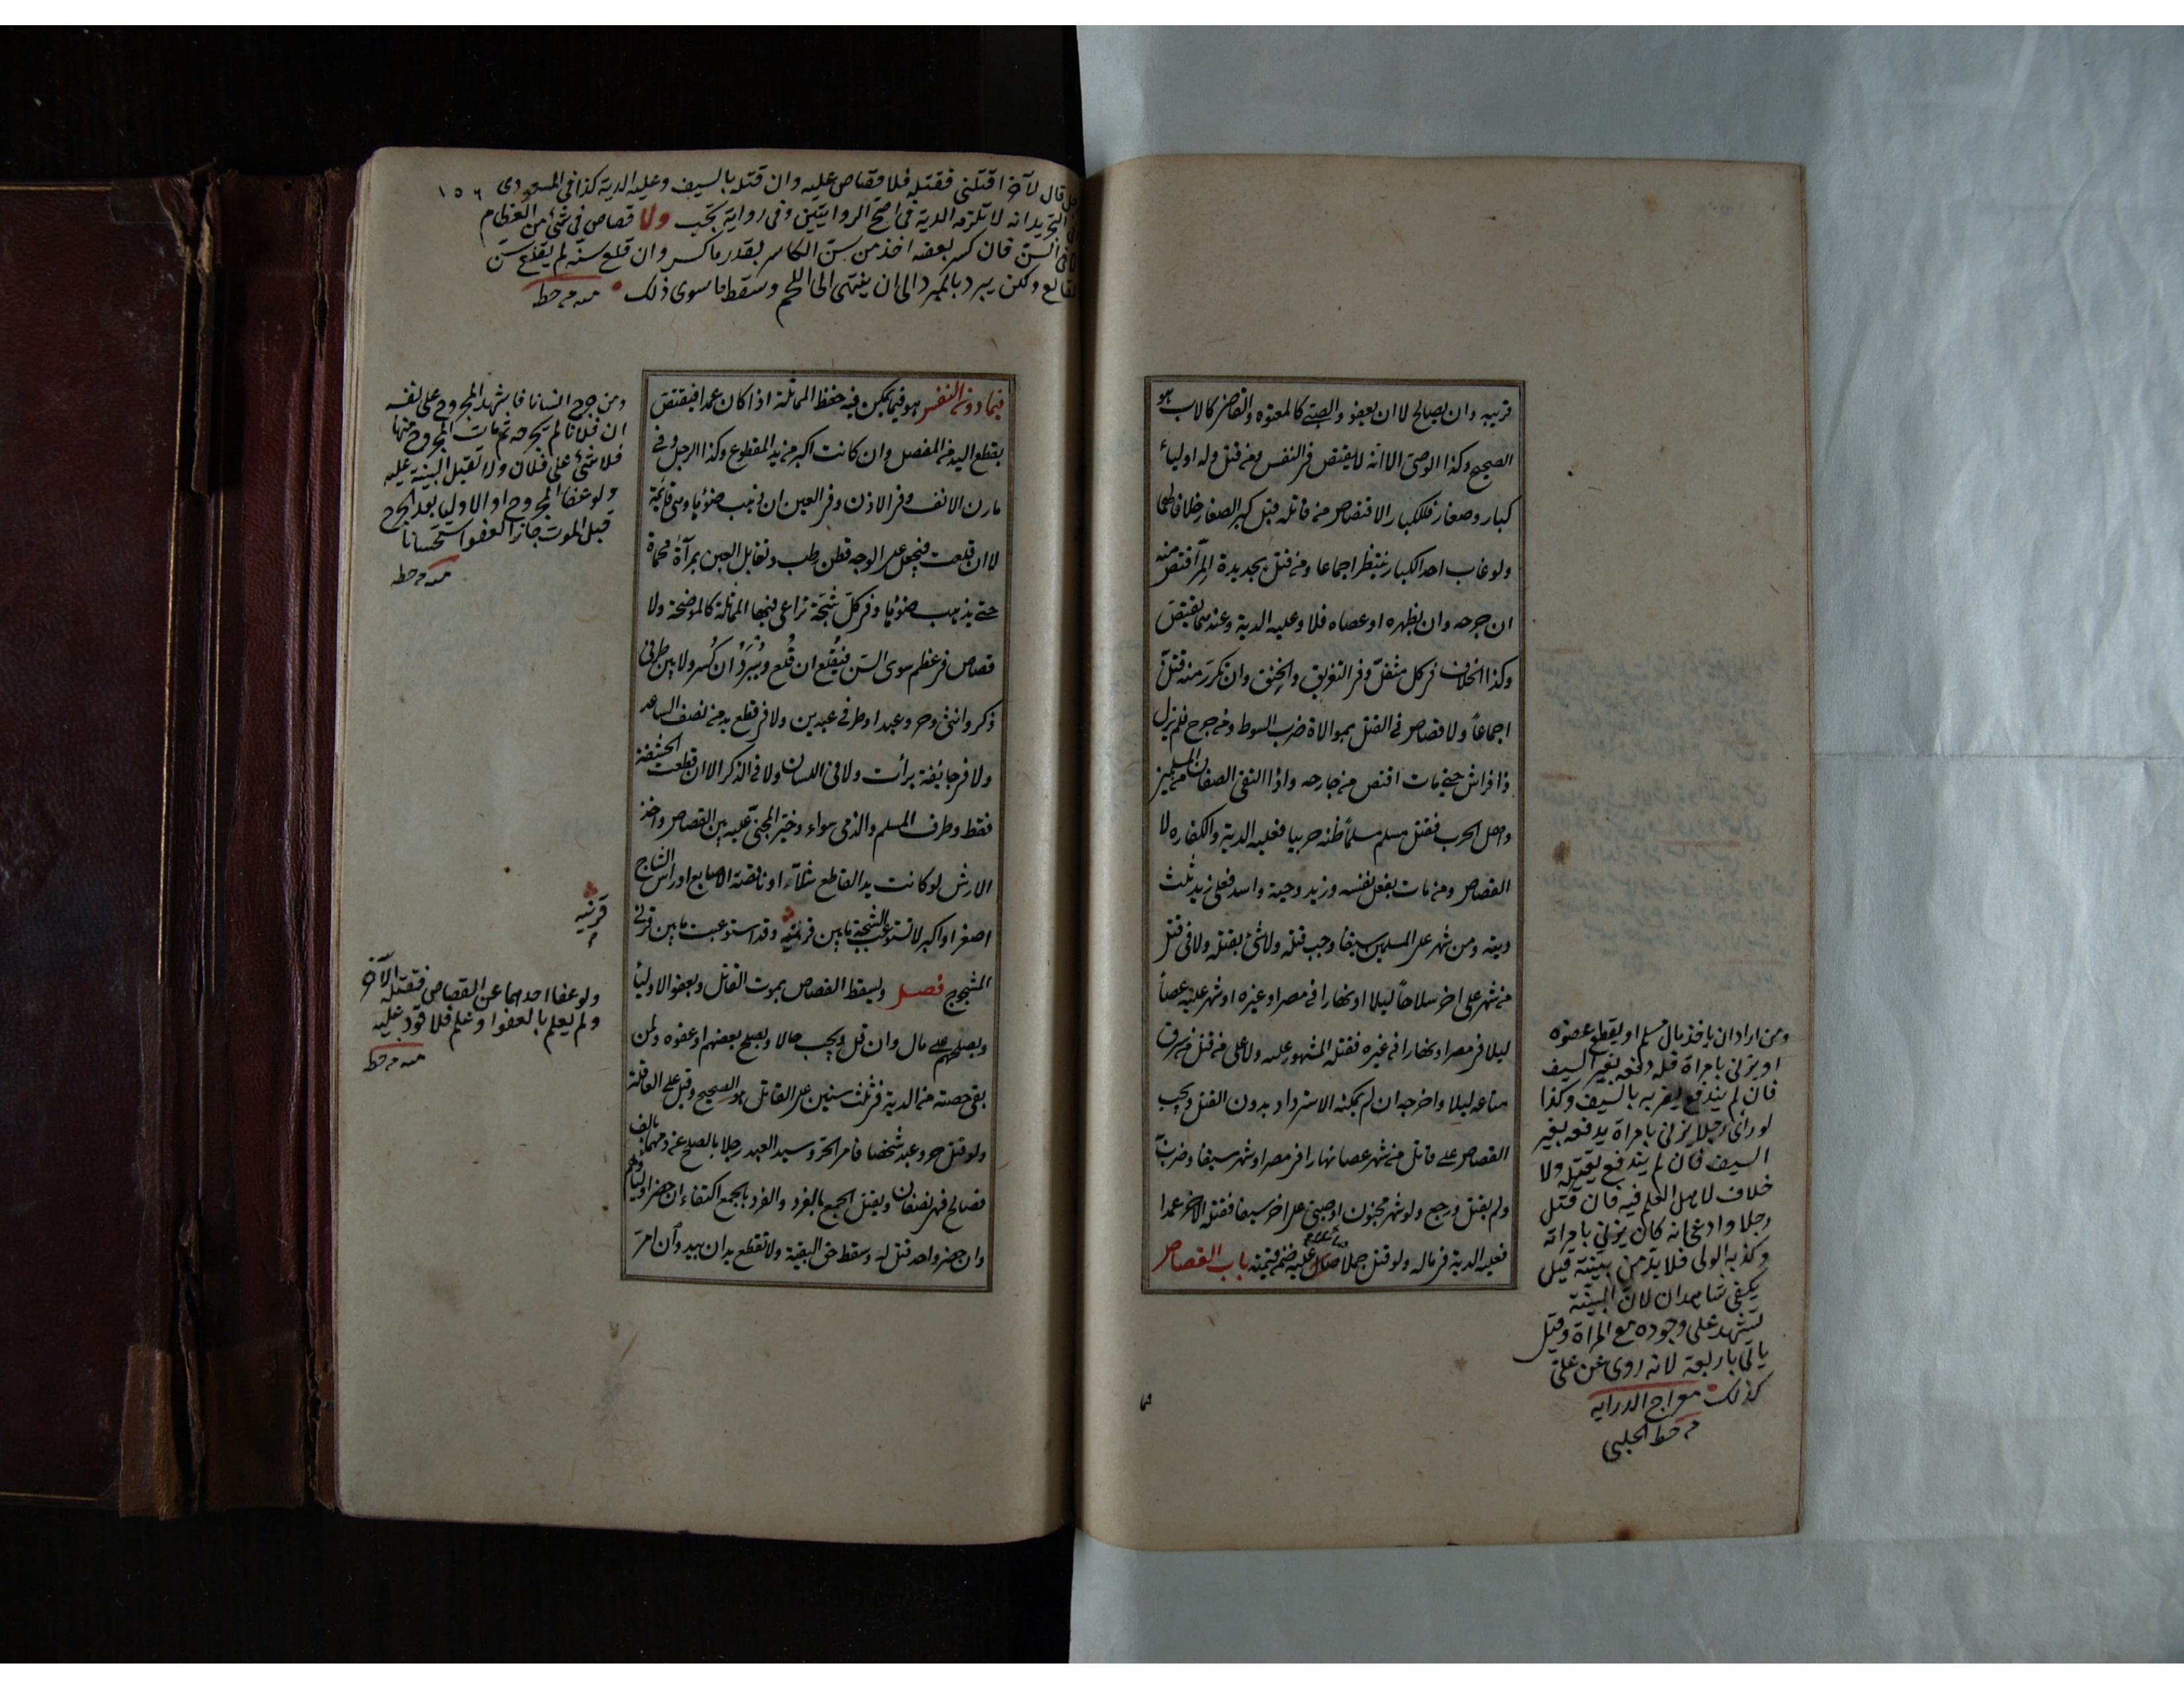 قريبه وان يصالح لا ان يعفو والصبي كالمعتوه والقاضي كالاب هو
الصحيح وكذا الوصي الا انه لا يقتص في النفس ومن قتل وله اولياء
كبار وصغار فللكبار الاقتصاص من قاتله قبل كبر الصغار خلافا لهما
ولو غاب احد الكبار ينتظر اجماعا ومن قتل بحديدة المرّ اقتص منه
ان جرحه وان بظهره او عصاه فلا وعليه الدية وعندهما يقتص
وكذا الخلاف في كل مثقل وفي التغريق والخنق وان تكرر منه قتل
اجماعاً ولا قصاص في القتل بموالاة ضرب السوط ومن جرح فلم يزل
ذا فراش حتى مات اقتص من جارحه واذا التقى الصفان من المسلمين
واهل الحرب فقتل مسلم مسلماً ظنه حربيا فعليه الدية والكفاره لا
القصاص ومن مات بفعل نفسه وزيد وحية واسد فعلى زيد ثلث
ديته ومن شهر على المسلمين سيفا وجب قتله ولا شئ بقتله ولا في قتل
من شهر على اخر سلاحاً ليلا او نهارا في مصر او غيره او شهر عليه عصاً
ليلا في مصر او نهارا في غيره فقتله المشهور عليه ولا على من قتل من سرق
متاعه ليلا واخرجه ان لم يمكنه الاسترداد بدون القتل ويجب
القصاص على قاتل من شهر عصا نهارا في مصر او شهر سيفا وضرب به
ولم يقتل ورجع ولو شهر مجنون او صبي على اخر سيفا فقتله الاخر عمدا
فعليه الدية في ماله ولو قتل جملا صال عليه ضمن قيمته باب القصاص
ومن اراد ان ياخذ مال مسلم او يقطع عضوه
او يزني بامراة فله دفعه بغير السيف
فان لم يندفع يضربه بالسيف وكذا
لو راى رجلا يزني بامراة يدفعه بغير
السيف فان لم يندفع يقتله ولا
خلاف لاهل العلم فيه فان قتل
رجلا وادعى انه كان يزني بامراته
وكذبه الولى فلا بد من بينة قيل
يكفى شاهدان لان البينة
تشهد على وجوده مع المراة وقيل
ياتى باربعة لانه روى عن على
كذلك معراج الدرايه
من خط الحلبى
فيما
قال لآخر اقتلنى فقتله فلا قصاص عليه وان قتله بالسيف وعليه الدية كذا فى ١٥٦
التجريد انه لا تلزمه الدية فى اصح الروايتين وفى رواية تجب ولا قصاص فى شئ من العظام
السن فان كسر بعضه اخذ من سن الكاسر بقدر ما كسر وان قلع سنه لم يقلع سن
القالع ولكن يبرد بالمبرد الى ان ينتهى الى اللحم وسقط ما سوى ذلك منه من خطه
فيما دون النفس هو فيما يمكن فيه حفظ المماثلة اذا كان عمدا فيقتص
بقطع اليد من المفصل وان كانت اكبر من يد المقطوع وكذا الرجل وفي
مارن الانف وفي الاذن وفي العين ان ذهب ضوؤها وهي قائمة
لا ان قلعت فيجعل على الوجه قطن رطب وتقابل العين بمرآة محماة
حتى يذهب ضوؤها وفي كل شجة تراعى فيها المماثلة كالموضحة ولا
قصاص في عظم سوى السن فيقلع ان قلع ويبرد ان كسر ولا بين طرفي
ذكر وانثى وحر وعبد او طرفي عبدين ولا في قطع يد من نصف الساعد
ولا في جائفة برأت ولا فى اللسان ولا في الذكر الا ان قطعت الحشفة
فقط وطرف المسلم والذمى سواء وخير المجني عليه بين القصاص واخذ
الارش لو كانت يد القاطع شلاء او ناقصة الاصابع او راس الشاج
اصغر او اكبر لا تستوعب الشجة ما بين قرنيه وقد استوعبت ما بين قرني
المشجوج فصل ويسقط القصاص بموت القاتل وبعفو الاوليا
وبصلحهم على مال وان قل ويجب حالا وبصلح بعضهم او عفوه ولمن
بقى حصته من الدية في ثلث سنين على القاتل هو الصحيح وقيل على العاقلة
ولو قتل حر وعبد شخصا فامر الحر وسيد العبد رجلا بالصلح عن دمهما بالف
فصالح فهي نصفان ويقتل الجمع بالفرد والفرد بالجمع اكتفاء ان حضر اولياؤهم
وان حضر واحد قتل له وسقط حق البقية ولا تقطع يدان بيد وان امرّ
ومن جرح انسانا فاشهد المجروح على نفسه
ان فلانا لم يجرحه ثم مات المجروح منها
فلا شئ على فلان ولا تقبل البينة عليه
ولو عفا المجروح او الاوليا بعد الجرح
قبل الموت جاز العفو استحسانا
منه من خطه
قرنيه
ولو عفا احدهما عن القصاص فقتله الآخر
ولم يعلم بالعفو او علم فلا قود عليه
منه من خطه